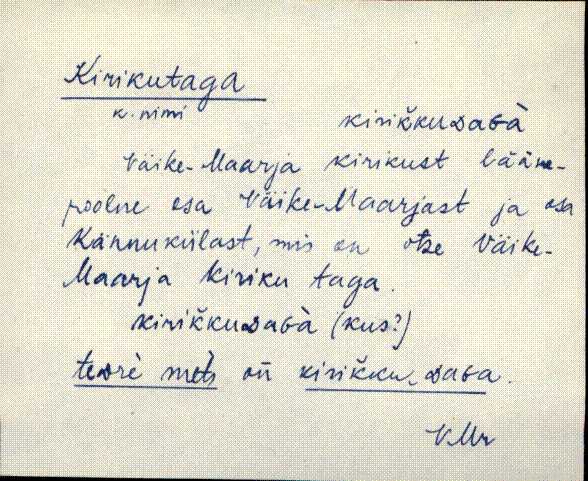 Kirikutaga
k. nimi
kirikkuᴅaɢà
Väike-Maarja kirikust lääne-
poolne osa Väike-Maarjast ja osa
Kännukülast, mis on otse Väike-
Maarja kiriku taga.
kirikkuᴅaɢà (kus?)
teᴅrè mets on kirikku‿ᴅaɢa.
VMr